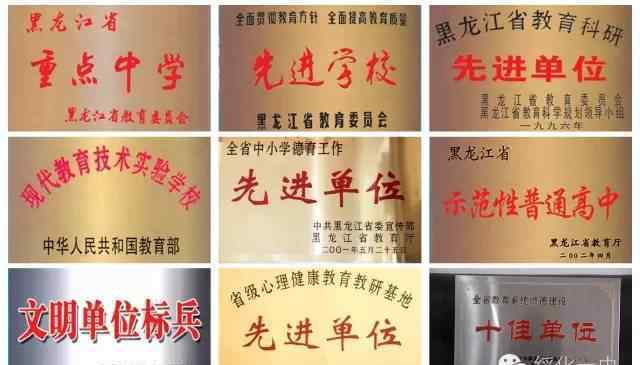 黑龙江省
重点中学
黑龙江省教育委员会
全面贯彻教育方针 全面提高教育质量
先进学校
黑龙江省教育委员会
黑龙江省教育科研
先进单位
黑龙江省教育委员会
黑龙江省教育科学规划领导小组
一九九六年
现代教育技术实验学校
中华人民共和国教育部
全省中小学德育工作
先进单位
中共黑龙江省委宣传部
黑龙江省教育厅
二00一年五月二十五日
黑龙江省
示范性普通高中
黑龙江省教育厅
二00二年四月
文明单位标兵
省级心理健康教育教研基地
先进单位
十佳单位
绥化一中